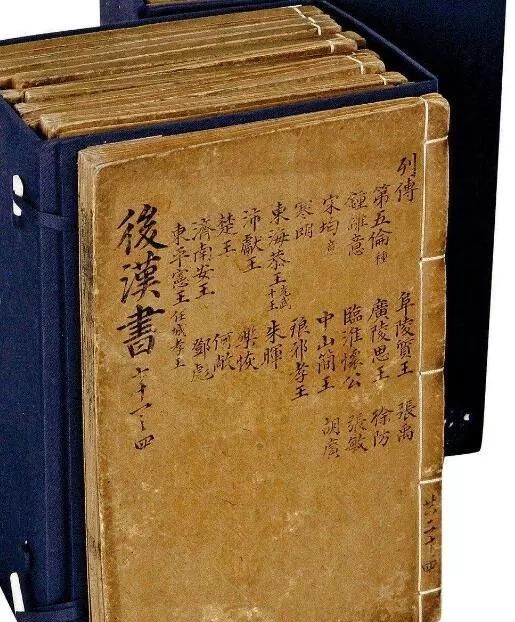 列傳 阜陵質王 張禹
第五倫種 廣陵思王 徐防
鍾離意 臨淮懷公 張敏
宋均意 中山簡王 胡廣
寒朗 琅邪孝王
東海恭王光武十王 朱暉
沛獻王 樂恢
楚王 何敞
濟南安王 鄧彪
東平憲王任城孝王
後漢書 七十一之四